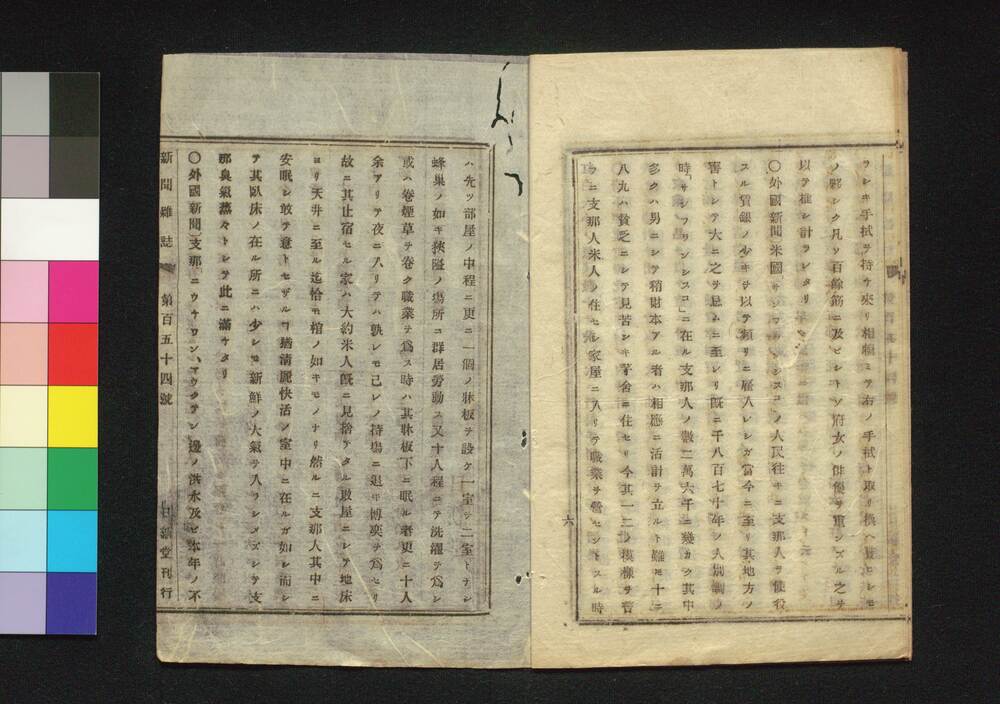 ヲシキ手拭ヲ持ケ來リ相類ミテ右ノ手拭ト取リ換ヘ貰ヒシモ
ノ夥シク凡ソ百餘筋ニ及ビシトゾ府女ノ俳優ヲ重ンズル之ヲ
以テ推シ計ラレタリ
〇外國新聞米國サンフランシスコノ人民往キニ支那人ヲ使役
スル賃銀ノ少キヲ以テ頻リニ雇入レシガ當今ニ至リ其地方ノ
害トシテ大ニ之ヲ忌ムニ至レリ既ニ千八百七十年ノ人別調ノ
時「サンフランシスコ」ニ在ル支那人ノ數二萬六千ニ幾カク其中
多クハ男ニシテ稍財本アル者ハ相應ニ活計ヲ立ルト雖モ十ニ
八九ハ貧乏ニシテ見苦シキ茅舍ニ住セリ今其一二ノ模樣ヲ言
フニ支那人米人ノ住セシ家屋ニ入リテ職業ヲ營セントスル時
六
ハ先ツ部屋ノ中程ニ更ニ一個ノ牀板ヲ設ケ一室ヲ二室トナシ
蜂巢ノ如キ狹隘ノ場所ニ群居勞動ス又十人程ニテ洗濯ヲ爲シ
或ハ卷煙草ヲ卷ク職業ヲ爲ス時ハ其牀板下ニ眠ル者更ニ十人
余アリテ夜ニ入リテハ孰レモ己レノ持場ニ退キ博奕ヲ爲セリ
故ニ其止宿セル家ハ大約米人既ニ見捨テタル敗屋ニシテ地床
ヨリ天井ニ至ル迄恰モ棺ノ如キモノナリ然ルニ支那人其中ニ
安眠シ敢テ意トセザルヿ猶淸麗快活ノ室中ニ在ルガ如シ而シ
テ其臥床ノ在ル所ニハ少シモ新鮮ノ大氣ヲ入ラシメズシテ支
那臭氣蒸々トシテ此ニ滿ケタリ
〇外國新聞支那ニウチワン、マウクテン邊ノ洪水及ビ本年ノ不
新聞雜誌 第百五十四號 日新堂刊行